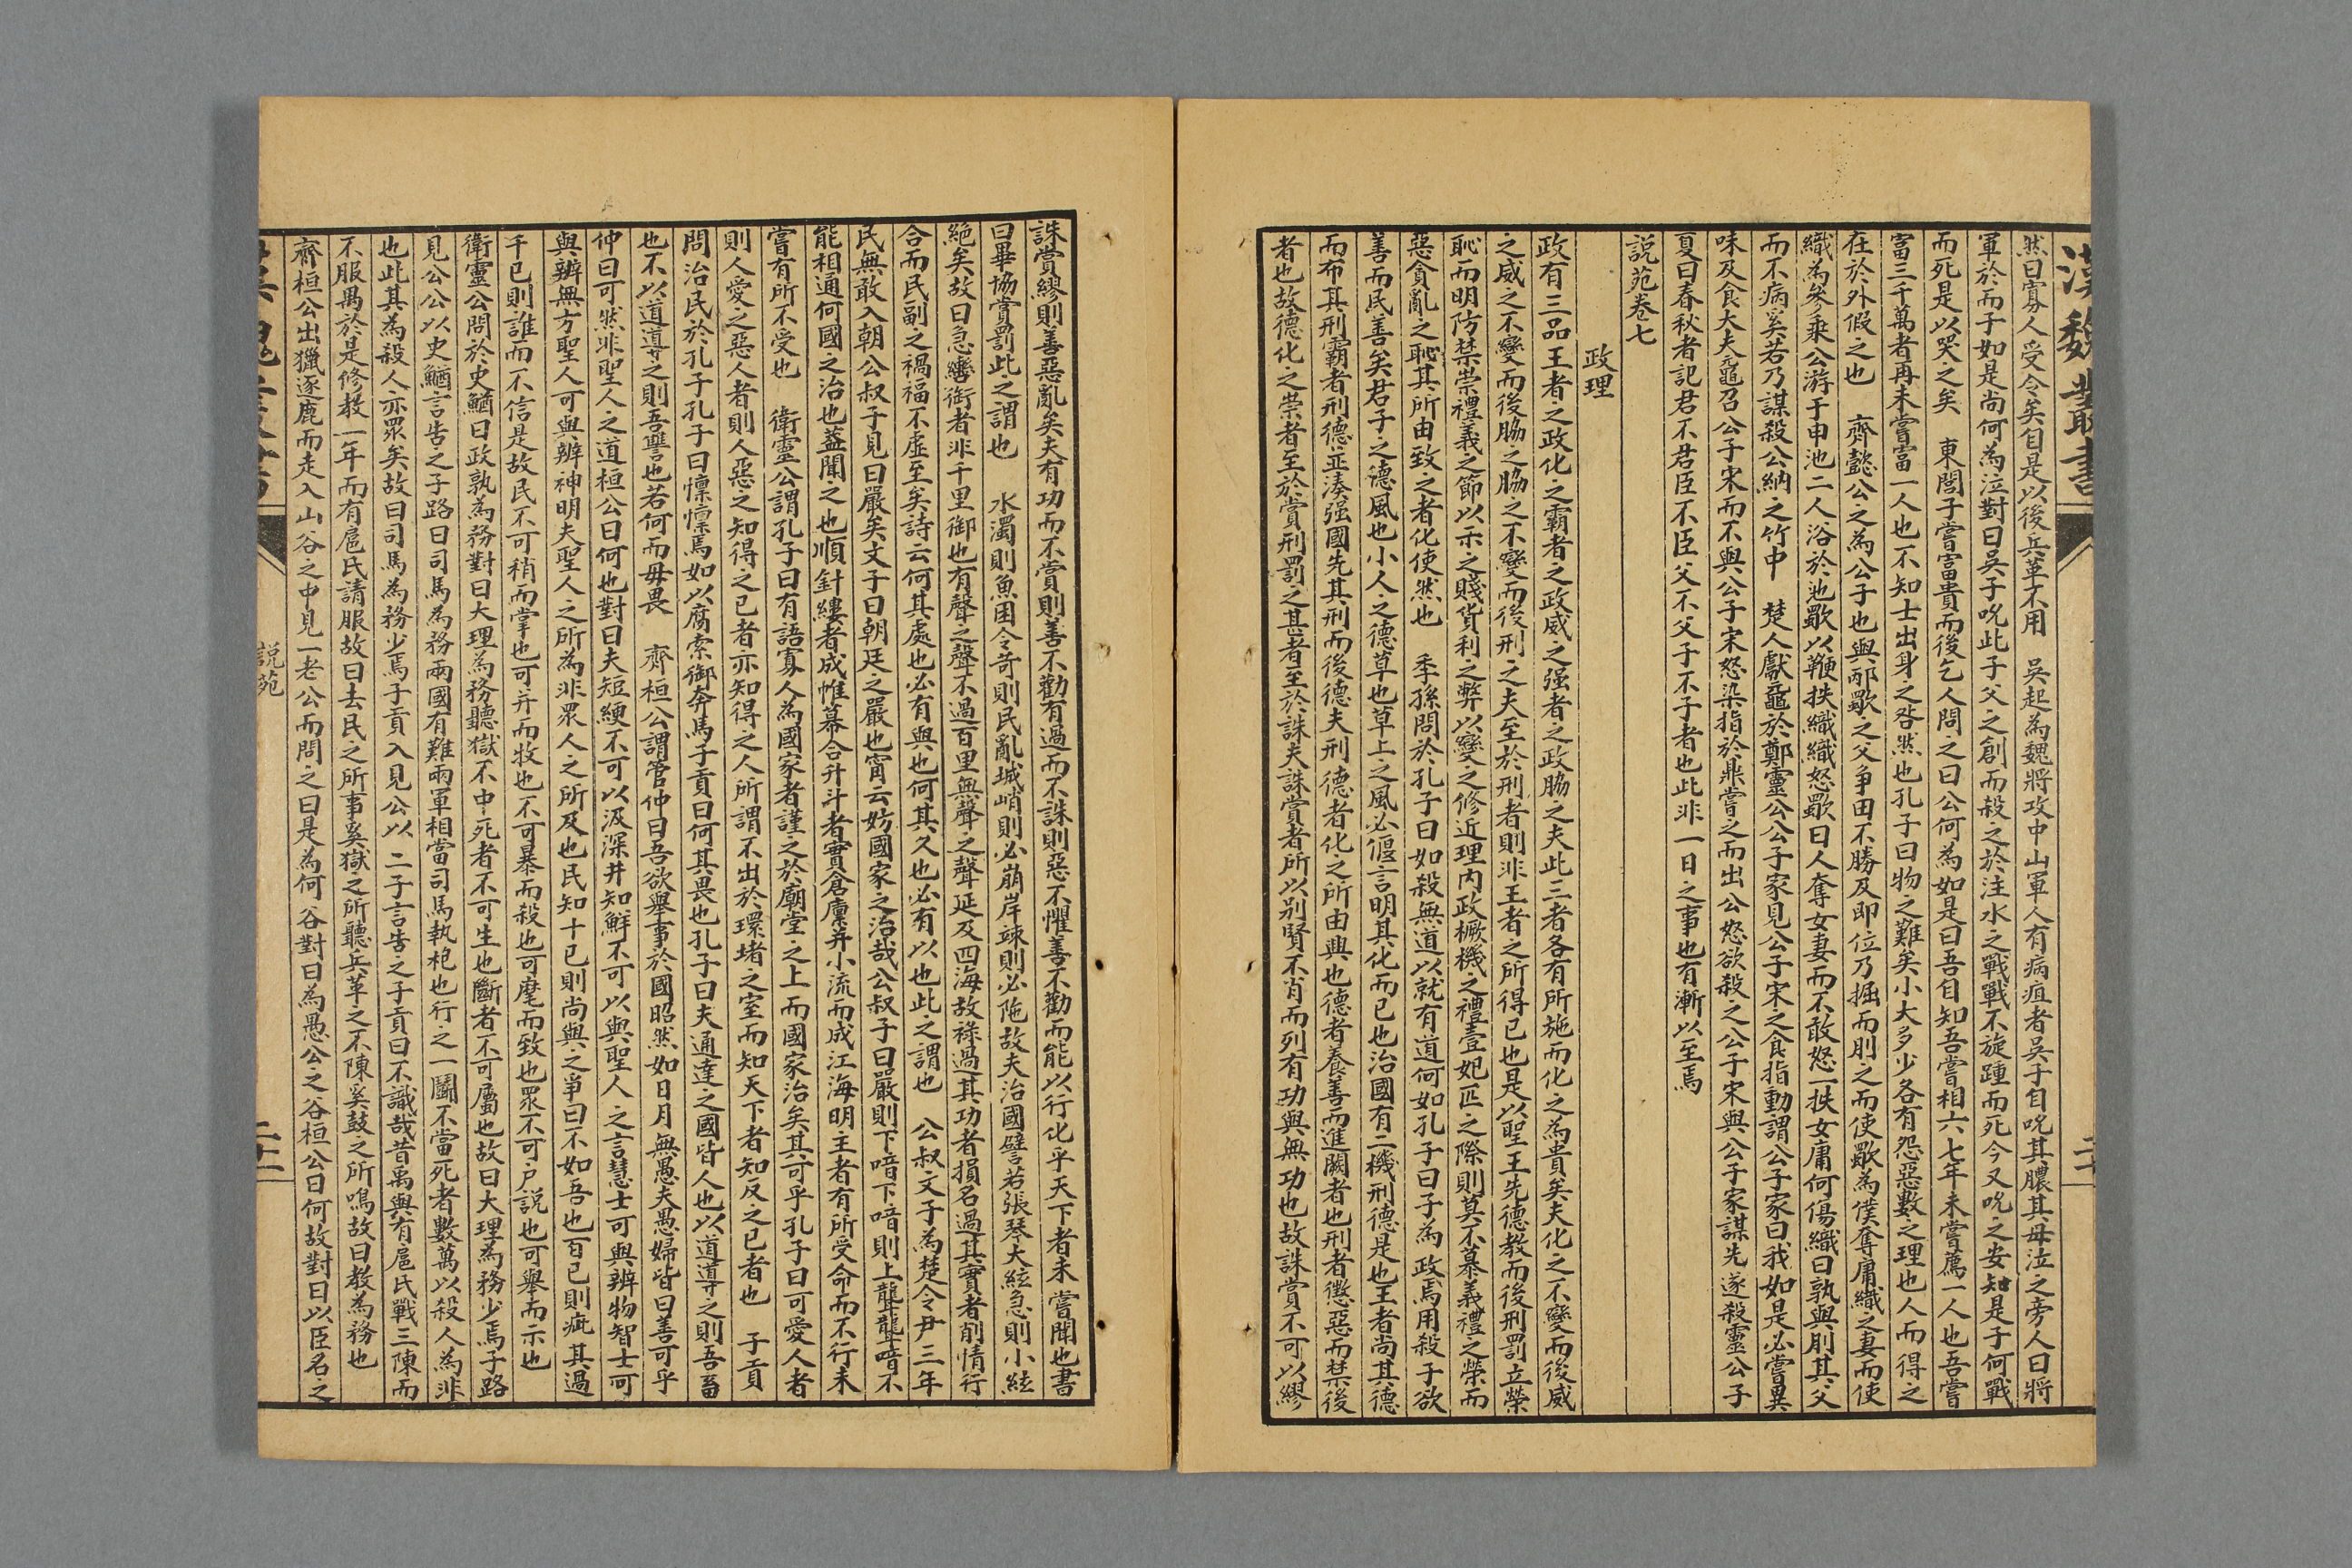 漢魏叢書
然曰寡人受令矣自是以後兵革不用　吳起為魏將攻中山軍人有病疽者吳子自吮其膿其母泣之旁人曰將
軍於而子如是尚何為泣對曰吳子吮此子父之創而殺之於注水之戰戰不旋踵而死今又吮之安知是子何戰
而死是以哭之矣　東閭子嘗富貴而後乞人問之曰公何為如是曰吾自知吾嘗相六七年未嘗薦一人也吾嘗
富三千萬者再未嘗富一人也不知士出身之咎然也孔子曰物之難矣小大多少各有怨惡數之理也人而得之
在於外假之也　齊懿公之為公子也與邴歜之父爭田不勝及即位乃掘而刖之而使歜為僕奪庸織之妻而使
織為參乘公游于申池二人浴於池歜以鞭抶織織怒歜曰人奪女妻而不敢怒一抶女庸何傷織曰孰與刖其父
而不病奚若乃謀殺公納之竹中　楚人獻黿於鄭靈公公子家見公子宋之食指動謂公子家曰我如是必嘗異
味及食大夫黿召公子宋而不與公子宋怒染指於鼎嘗之而出公怒欲殺之公子宋與公子家謀先遂殺靈公子
夏曰春秋者記君不君臣不臣父不父子不子者也此非一日之事也有漸以至焉
說苑卷七
政理
政有三品王者之政化之霸者之政威之强者之政脇之夫此三者各有所施而化之為貴矣夫化之不變而後威
之威之不變而後脇之脇之不變而後刑之夫至於刑者則非王者之所得已也是以聖王先德教而後刑罰立榮
恥而明防禁崇禮義之節以示之賤貨利之弊以變之修近理內政橛機之禮壹妃匹之際則莫不慕義禮之榮而
惡貪亂之恥其所由致之者化使然也　季孫問於孔子曰如殺無道以就有道何如孔子曰子為政焉用殺子欲
善而民善矣君子之德風也小人之德草也草上之風必偃言明其化而已也治國有二機刑德是也王者尚其德
而布其刑霸者刑德並湊强國先其刑而後德夫刑德者化之所由興也德者養善而進闕者也刑者懲惡而禁後
者也故德化之崇者至於賞刑罰之甚者至於誅夫誅賞者所以别賢不肖而列有功與無功也故誅賞不可以繆
誅賞繆則善惡亂矣夫有功而不賞則善不勸有過而不誅則惡不懼善不勸而能以行化乎天下者未嘗聞也書
曰畢協賞罰此之謂也　水濁則魚困令苛則民亂城峭則必崩岸竦則必陁故夫治國譬若張琴大絃急則小絃
絕矣故曰急轡銜者非千里御也有聲之聲不過百里無聲之聲延及四海故祿過其功者損名過其實者削情行
合而民副之禍福不虛至矣詩云何其處也必有與也何其久也必有以也此之謂也　公叔文子為楚令尹三年
民無敢入朝公叔子見曰嚴矣文子曰朝廷之嚴也甯云妨國家之治哉公叔子曰嚴則下喑下喑則上聾聾喑不
能相通何國之治也蓋聞之也順針縷者成帷幕合升斗者實倉廩并小流而成江海明主者有所受命而不行未
嘗有所不受也　衛靈公謂孔子曰有語寡人為國家者謹之於廟堂之上而國家治矣其可乎孔子曰可愛人者
則人愛之惡人者則人惡之知得之已者亦知得之人所謂不出於環堵之室而知天下者知反之已者也　子貢
問治民於孔子孔子曰懍懍焉如以腐索御奔馬子貢曰何其畏也孔子曰夫通達之國皆人也以道導之則吾畜
也不以道導之則吾讐也若何而毋畏　齊桓公謂管仲曰吾欲舉事於國昭然如日月無愚夫愚婦皆曰善可乎
仲曰可然非聖人之道桓公曰何也對曰夫短綆不可以汲深井知鮮不可以與聖人之言慧士可與辨物智士可
與辨無方聖人可與辨神明夫聖人之所為非眾人之所及也民知十已則尚與之爭曰不如吾也百已則疵其過
千已則誰而不信是故民不可稍而掌也可并而牧也不可暴而殺也可麾而致也眾不可戶說也可舉而示也
衛靈公問於史鰌曰政孰為務對曰大理為務聽獄不中死者不可生也斷者不可屬也故曰大理為務少焉子路
見公公以史鰌言告之子路曰司馬為務兩國有難兩軍相當司馬執枹也行之一鬬不當死者數萬以殺人為非
也此其為殺人亦眾矣故曰司馬為務少焉子貢入見公以二子言告之子貢曰不識哉昔禹與有扈氏戰三陳而
不服禹於是修教一年而有扈氏請服故曰去民之所事奚獄之所聽兵革之不陳奚鼓之所鳴故曰教為務也
齊桓公出獵逐鹿而走入山谷之中見一老公而問之曰是為何谷對曰為愚公之谷桓公曰何故對曰以臣名之
說苑